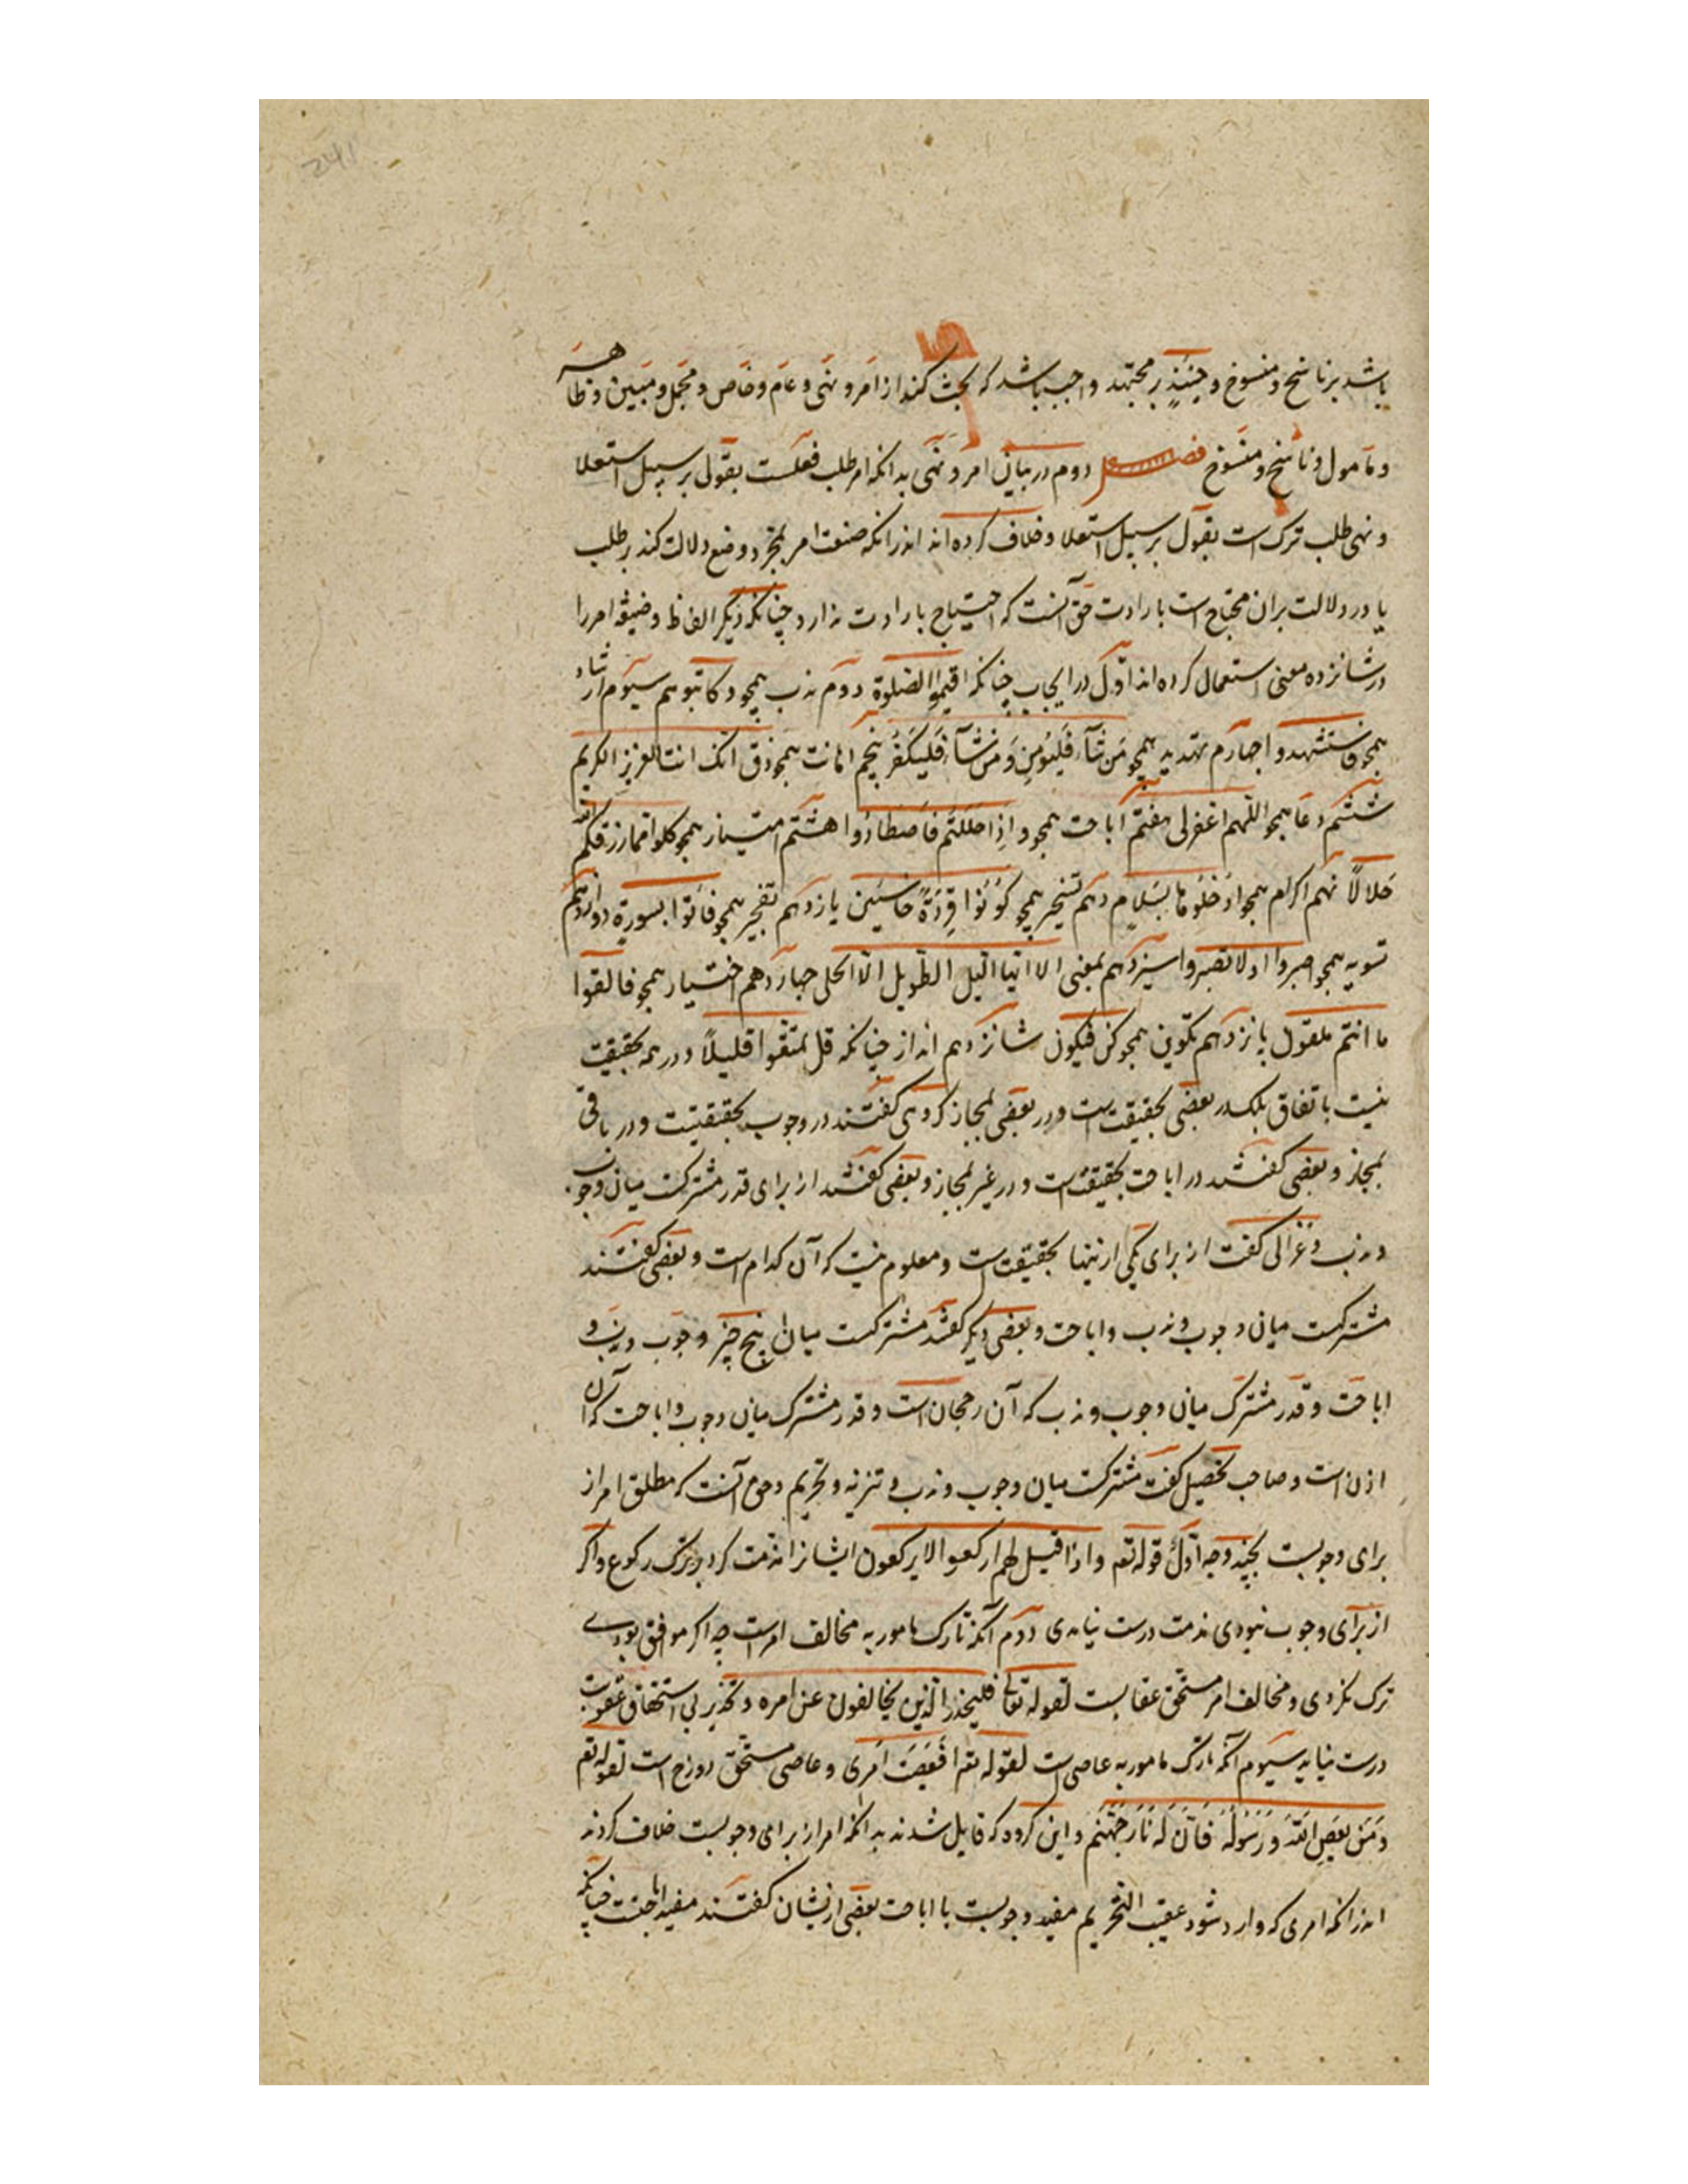 باشد بر ناسخ و منسوخ و حینئذ بر مجتهد واجب باشد که بحث کند از امر و نهی و عام و خاص و مجمل و مبین و ظاهر
و مأمول و ناسخ و منسوخ فصل دوم در بیان امر و نهی بدانکه امر طلب فعلست بقول بر سبیل استعلا
و نهی طلب ترک است بقول بر سبیل استعلا و خلاف کرده اند اندرانکه صنعت امر بمجرد وضع دلالت کند بر طلب
یا در دلالت بران محتاج است بارادت حق آنست که احتیاج بارادت ندارد چنانکه دیگر الفاظ و صیغه امر را
در شانزده معنی استعمال کرده اند اول در ایجاب چنانکه اقیموا الصلوة دوم ندب همچو و کاتبوهم سیوم ارشاد
همچو فاستشهدوا چهارم تهدید همچو من شآء فلیؤمن و من شآء فلیکفر پنجم اهانت همچو ذق انک انت العزیز الکریم
ششم دعا همچو اللهم اغفر لی هفتم اباحت همچو و اذا حللتم فاصطادوا هشتم امتینان همچو کلوا مما رزقکم الله
حلالاً نهم اکرام همچو ادخلوها بسلام دهم تسخیر همچو کونوا قردة خاسئین یازدهم تعجیز همچو فاتوا بسورة دوازدهم
تسویه همچو اصبروا او لا تصبروا سیزدهم تمنی الا ایها اللیل الطویل الا انجلی چهاردهم اختیار همچو فالقوا
ما انتم ملقون پانزدهم تکوین همچو کن فیکون شانزدهم انذار چنانکه قل تمتعوا قلیلاً و در همه حقیقت
نیست باتفاق بلکه در بعضی بحقیقت است و در بعضی بمجاز کروهی کفتند در وجوب بحقیقتست و در باقی
بمجاز و بعضی کفتند در اباحت بحقیقت است و در غیر بمجاز و بعضی کفتند از برای قدر مشترکست میان وجوب
و ندب و غزالی کفت از برای یکی ازینها بحقیقت است و معلوم نیست که آن کدام است و بعضی کفتند
مشترکست میان وجوب و ندب و اباحت و بعضی دیکر کفتند مشترکست میان پنج چیز وجوب و ندب و
اباحت و قدر مشترک میان وجوب و ندب که آن رجحان است و قدر مشترک میان وجوب و اباحت که آن
اذن است و صاحب تحصیل کفت مشترکست میان وجوب و ندب و تنزیه و تحریم و حق آنست که مطلق امر از
برای وجوبست بچند وجه اول قوله تعه و اذا قیل لهم ارکعوا لا یرکعون ایشانرا مذمت کرد بر ترک رکوع و اکر
از برای وجوب نبودی مذمت درست نیامدی دوم آنکه تارک مامور به مخالف امر است چه اکر موافق بودی
ترک نکردی و مخالف امر مستحق عقابست لقوله تعالی فلیحذر الذین یخالفون عن امره و تحذیر بی استحقاق عقوبت
درست نیاید سیوم آنکه تارک مامور به عاصی است لقوله تعه افعصیت امری و عاصی مستحق دوزخ است لقوله تعه
و من یعص الله و رسوله فان له نار جهنم و این کروه که قایل شدند بدانکه امر از برای وجوبست خلاف کردند
اندرانکه امری که وارد شود عقیب التحریم مفید وجوبست یا اباحت بعضی ازیشان کفتند مفید اباحتست چنانکه